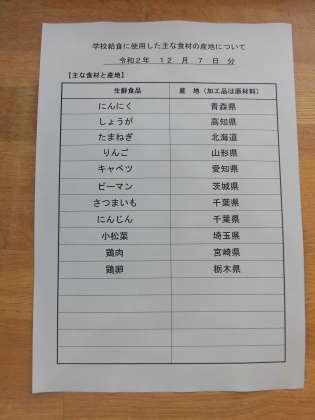 学校給食に使用した主な食材の産地について
令和2年 12 月 7 日 分
【主な食材と産地】
生鮮食品 産 地（加工品は原材料）
にんにく 青森県
しょうが 高知県
たまねぎ 北海道
りんご 山形県
キャベツ 愛知県
ピーマン 茨城県
さつまいも 千葉県
にんじん 千葉県
小松菜 埼玉県
鶏肉 宮崎県
鶏卵 栃木県